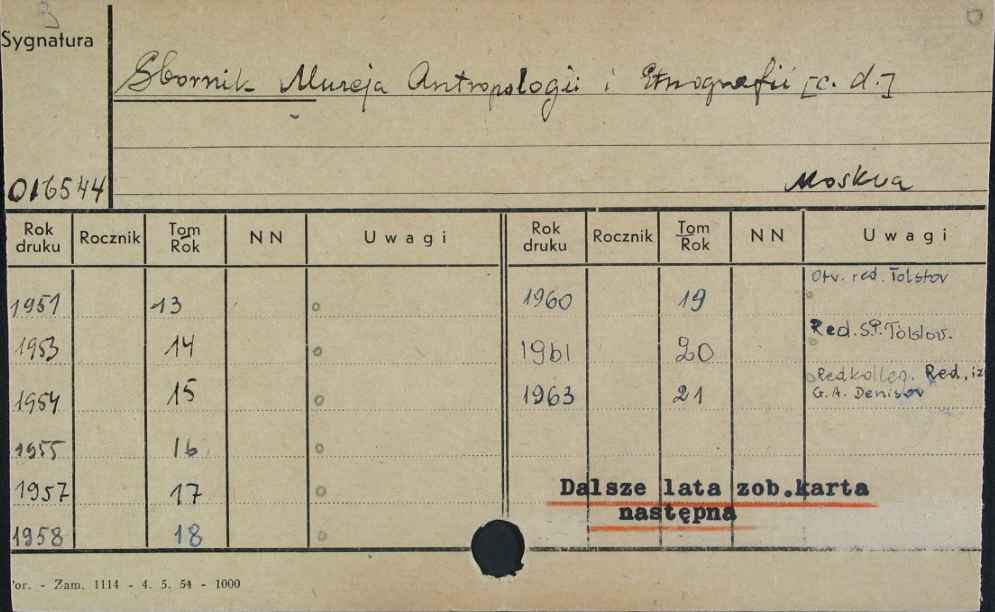 Sygnatura
Sbornik Muzeja Antropologii i Etnografii [c. d.]
016544
Moskva
Rok druku Rocznik Tom Rok NN Uwagi Rok druku Rocznik Tom Rok NN Uwagi
1951 13 1960 19 Otv. red. Tolstov
1953 14 1961 20 Red. S.P. Tolstov.
1954 15 1963 21 Redkolleg. Red. iz
G. A. Denisov
1955 16
1957 17 Dalsze lata zob.karta
następna
1958 18
or. - Zam. 1114 - 4. 5. 54 - 1000